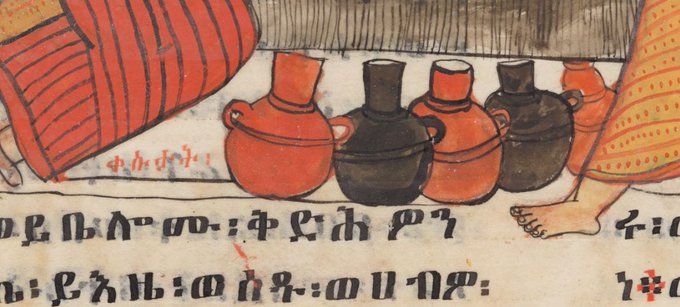 ቀሱታት፡
ወይቤሎሙ፡ቅድሕዎን
ይእዜ፡ወስዱ፡ወሀብዎ፡